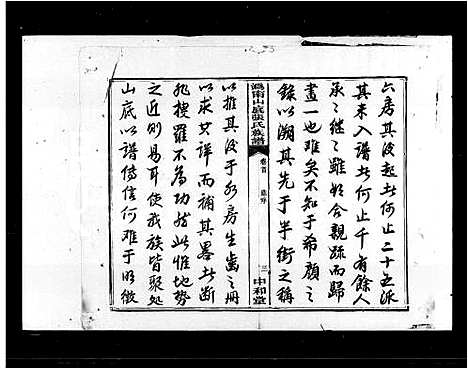 六房其後起者何止二十五派
其未入譜者何止千有餘人
承之繼之雖如合親疏而歸
畫一也難矣不知于希顏之
錄以溯其先于半街之稱
溫南山底張氏族譜
卷首
三
中和堂
以推其後于各房生齒之冊
以求其詳而補其畧者斷
非搜羅不為功然此惟地勢
之近則易耳使我族皆聚處
山底以譜傳信何難于明徵